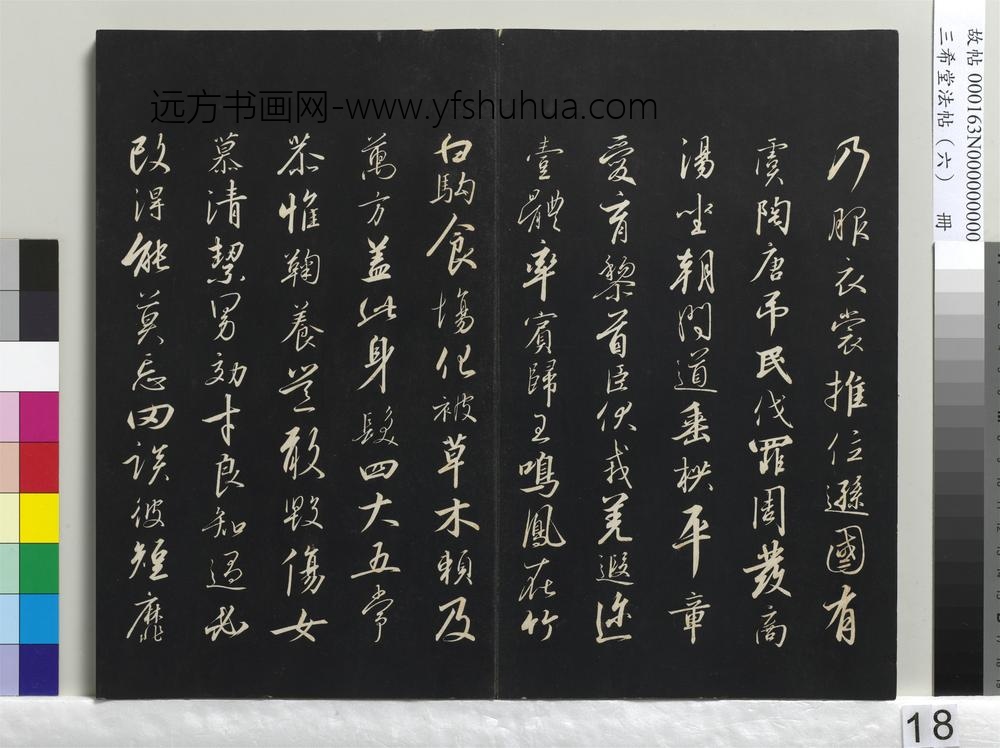 远方书画网-www.yfshuhua.com
故帖 000163N000000000
三希堂法帖（六） 冊
乃服衣裳推位遜國有
虞陶唐吊民伐罪周發商
湯坐朝問道垂拱平章
愛育黎首臣伏戎羌遐迩
壹體率賓歸王鳴鳳在竹
白駒食場化被草木賴及
萬方盖此身髮四大五常
恭惟鞠養豈敢毀傷女
慕清絜男効才良知過必
改得能莫忘罔談彼短靡
18